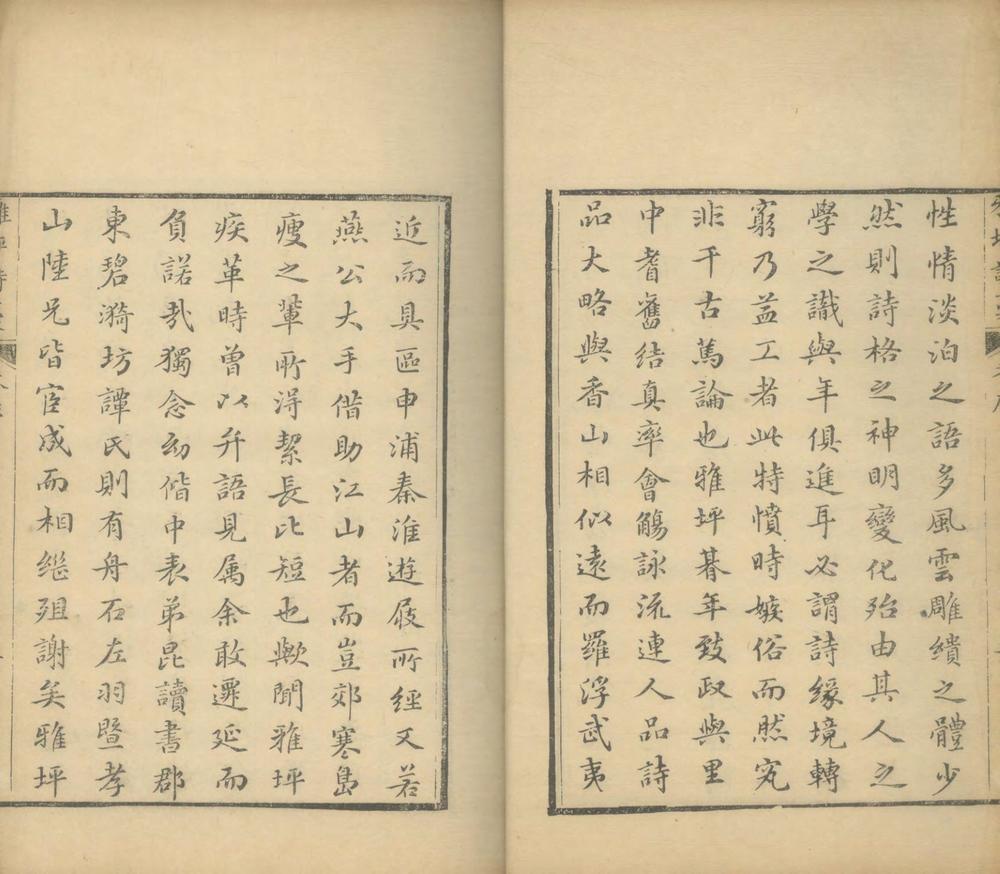 性情淡泊之語多風雲雕繢之體少
然則詩格之神明變化殆由其人之
學之識與年俱進耳必謂詩緣境轉
窮乃益工者此特憤時嫉俗而然究
非千古篤論也雅坪暮年致政與里
中耆舊結真率會觴詠流連人品詩
品大略與香山相似遠而羅浮武夷
近而具區申浦秦淮遊屐所經又若
燕公大手借助江山者而豈郊寒島
瘦之輩所得絜長比短也歟聞雅坪
疾革時曾以弁語見属余敢遷延而
負諾哉獨念幼偕中表弟昆讀書郡
東碧漪坊譚氏則有舟石左羽暨孝
山陸兄皆宦成而相継殂謝矣雅坪